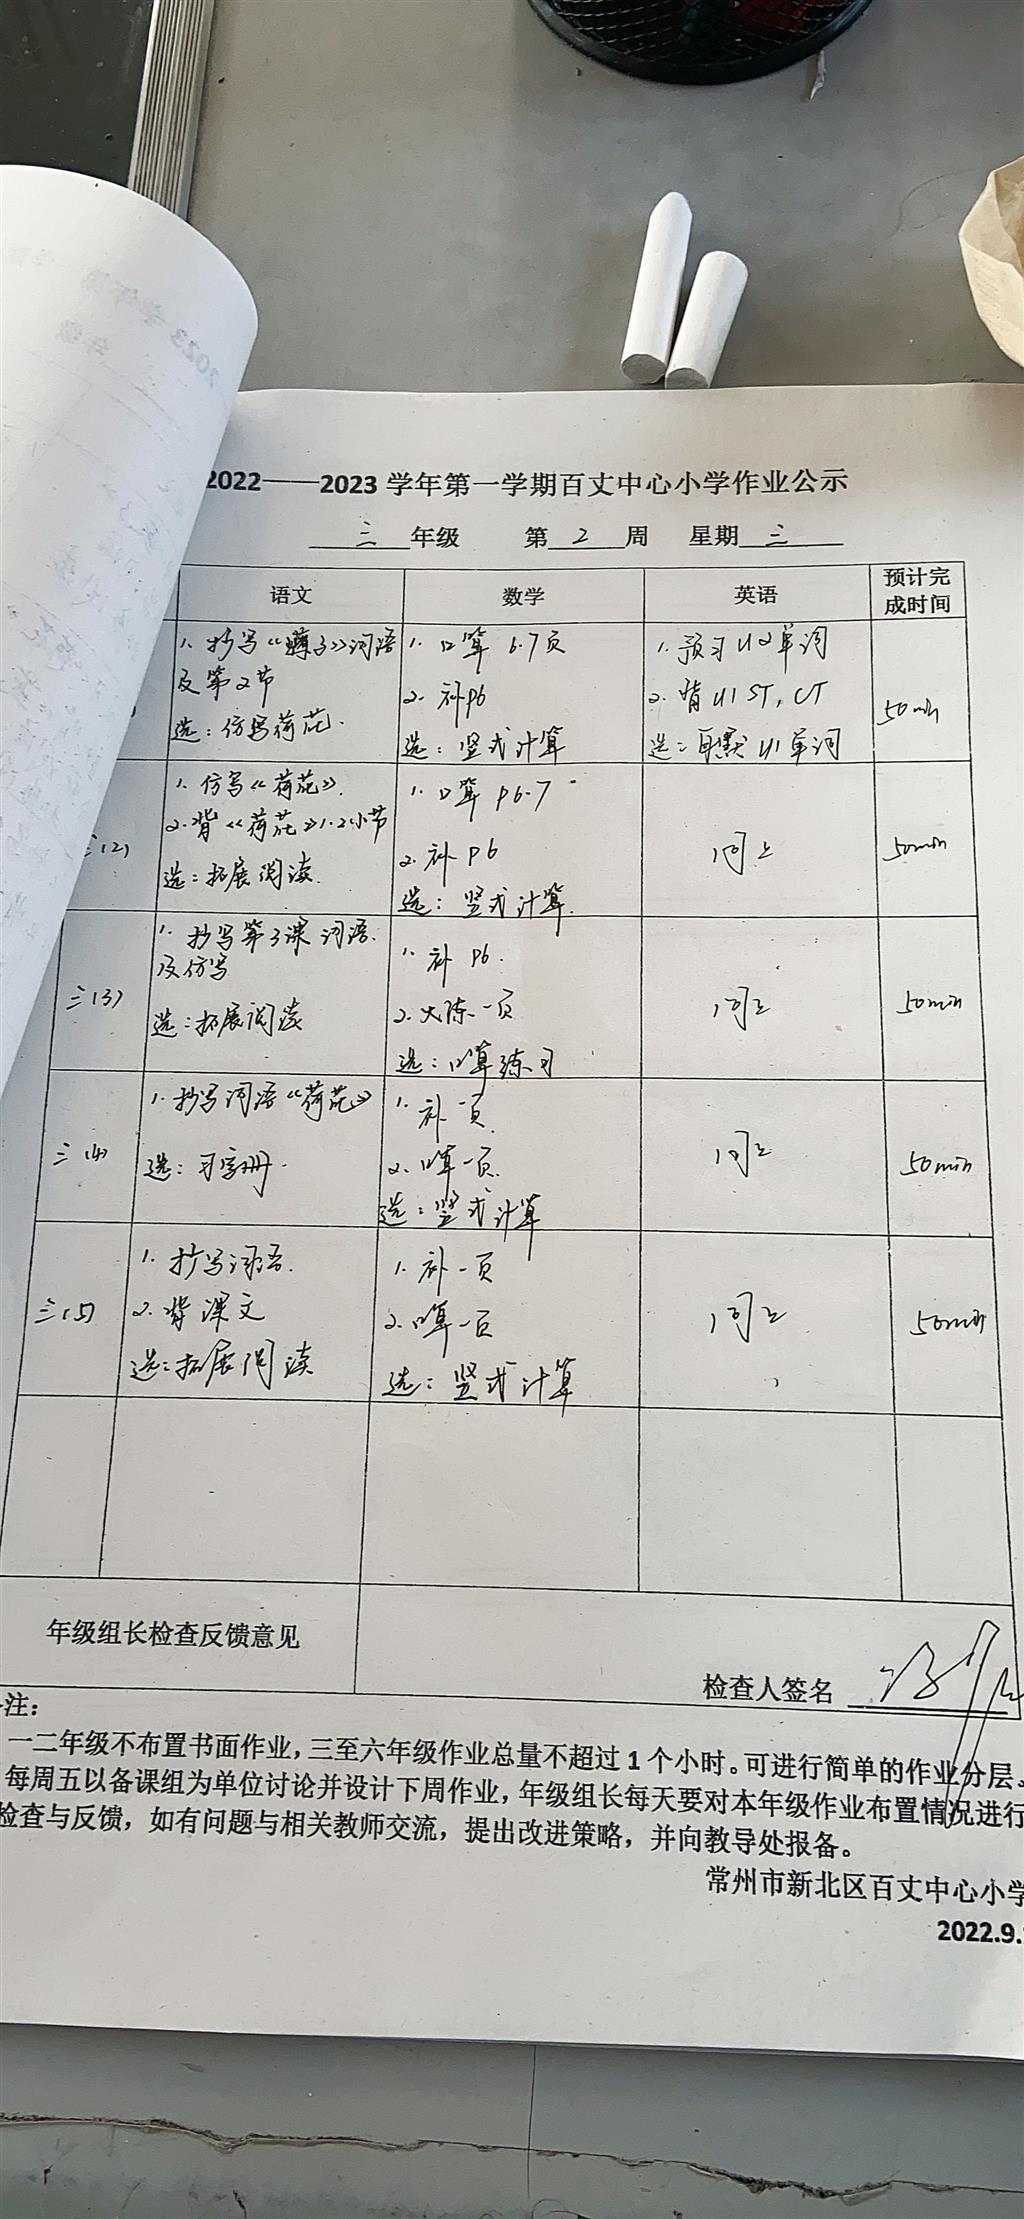 2022——2023 学年第一学期百丈中心小学作业公示
三 年级 第 2 周 星期 三
语文 数学 英语 预计完成时间
1. 抄写《 》词语
及第2节
选：仿写荷花.
1. 口算 6.7页
2. 补P6
选：竖式计算
1. 预习U2单词
2. 背U1 ST, CT
选：自默U1单词
50min
三(2)
1. 仿写《荷花》.
2. 背《荷花》1.2小节
选：拓展阅读.
1. 口算 P6.7
2. 补 P6
选：竖式计算.
同上
50min
三(3)
1. 抄写第3课词语.
及仿写
选：拓展阅读
1. 补 P6.
2. 大练一页
选：口算练习
同上
50min
三(4)
1. 抄写词语《荷花》
选：习字册.
1. 补一页.
2. 口算一页.
选：竖式计算
同上
50min
三(5)
1. 抄写词语.
2. 背课文
选：拓展阅读
1. 补一页
2. 口算一页
选：竖式计算
同上
50min
年级组长检查反馈意见
检查人签名
注：
一二年级不布置书面作业，三至六年级作业总量不超过 1 个小时。可进行简单的作业分层。
每周五以备课组为单位讨论并设计下周作业，年级组长每天要对本年级作业布置情况进行
检查与反馈，如有问题与相关教师交流，提出改进策略，并向教导处报备。
常州市新北区百丈中心小学
2022.9.